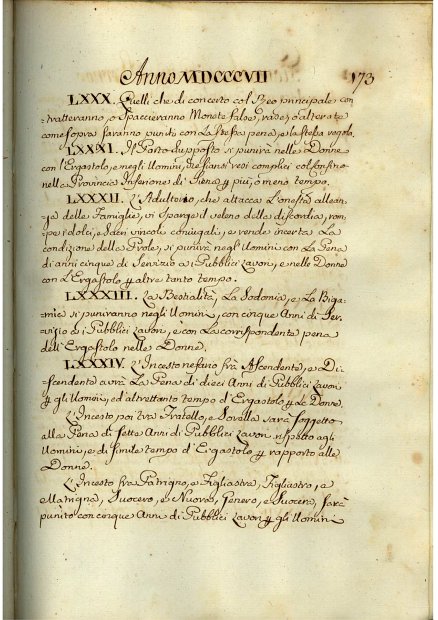 Anno MDCCCVII 173
LXXX. Quelli che di concerto col Reo principale con-
tratteranno, o Spaccieranno Monete false, rase, o alterate
come sopra saranno puniti con La stessa pena, e la stessa regola.
LXXXI. Il Parto supposto si punirà nelle Donne
con l'Ergastolo, e negli Uomini, che siansi resi complici col confino
nella Provincia Inferiore di Siena per più, o meno tempo.
LXXXII. L'Adulterio, che attacca L'onestà, e l'allean-
za delle Famiglie, vi sparge il veleno della discordia, rom-
pe i dolci, e Sacri vincoli coniugali, e rende incerta La
condizione della Prole, si punirà negli Uomini con La Pena
di anni cinque di Servizio ai Pubblici Lavori, e nelle Donne
con L'Ergastolo per altre tanto tempo.
LXXXIII. La Bestialità, La Sodomia, e La Biga-
mia si puniranno negli Uomini, con cinque Anni di Ser-
vizio ai Pubblici Lavori, e con La corrispondente pena
dell'Ergastolo nelle Donne.
LXXXIV. L'Incesto nefario frà Ascendente, e Di-
scendente avrà La Pena di dieci Anni di Pubblici Lavori
per gli Uomini, ed altrettanto tempo d'Ergastolo per Le Donne.
L'Incesto poi tra Fratello, e Sorella sarà soggetto
alla Pena di Sette Anni di Pubblici Lavori rispetto agli
Uomini, e di simile tempo d'Ergastolo per rapporto alle
Donne.
L'Incesto fra Patrigno, e Figliastra, Figliastro, e
Matrigna, Suocero, e Nuora, Genero, e Suocera, sarà
punito con cinque Anni di Pubblici Lavori per gli Uomini